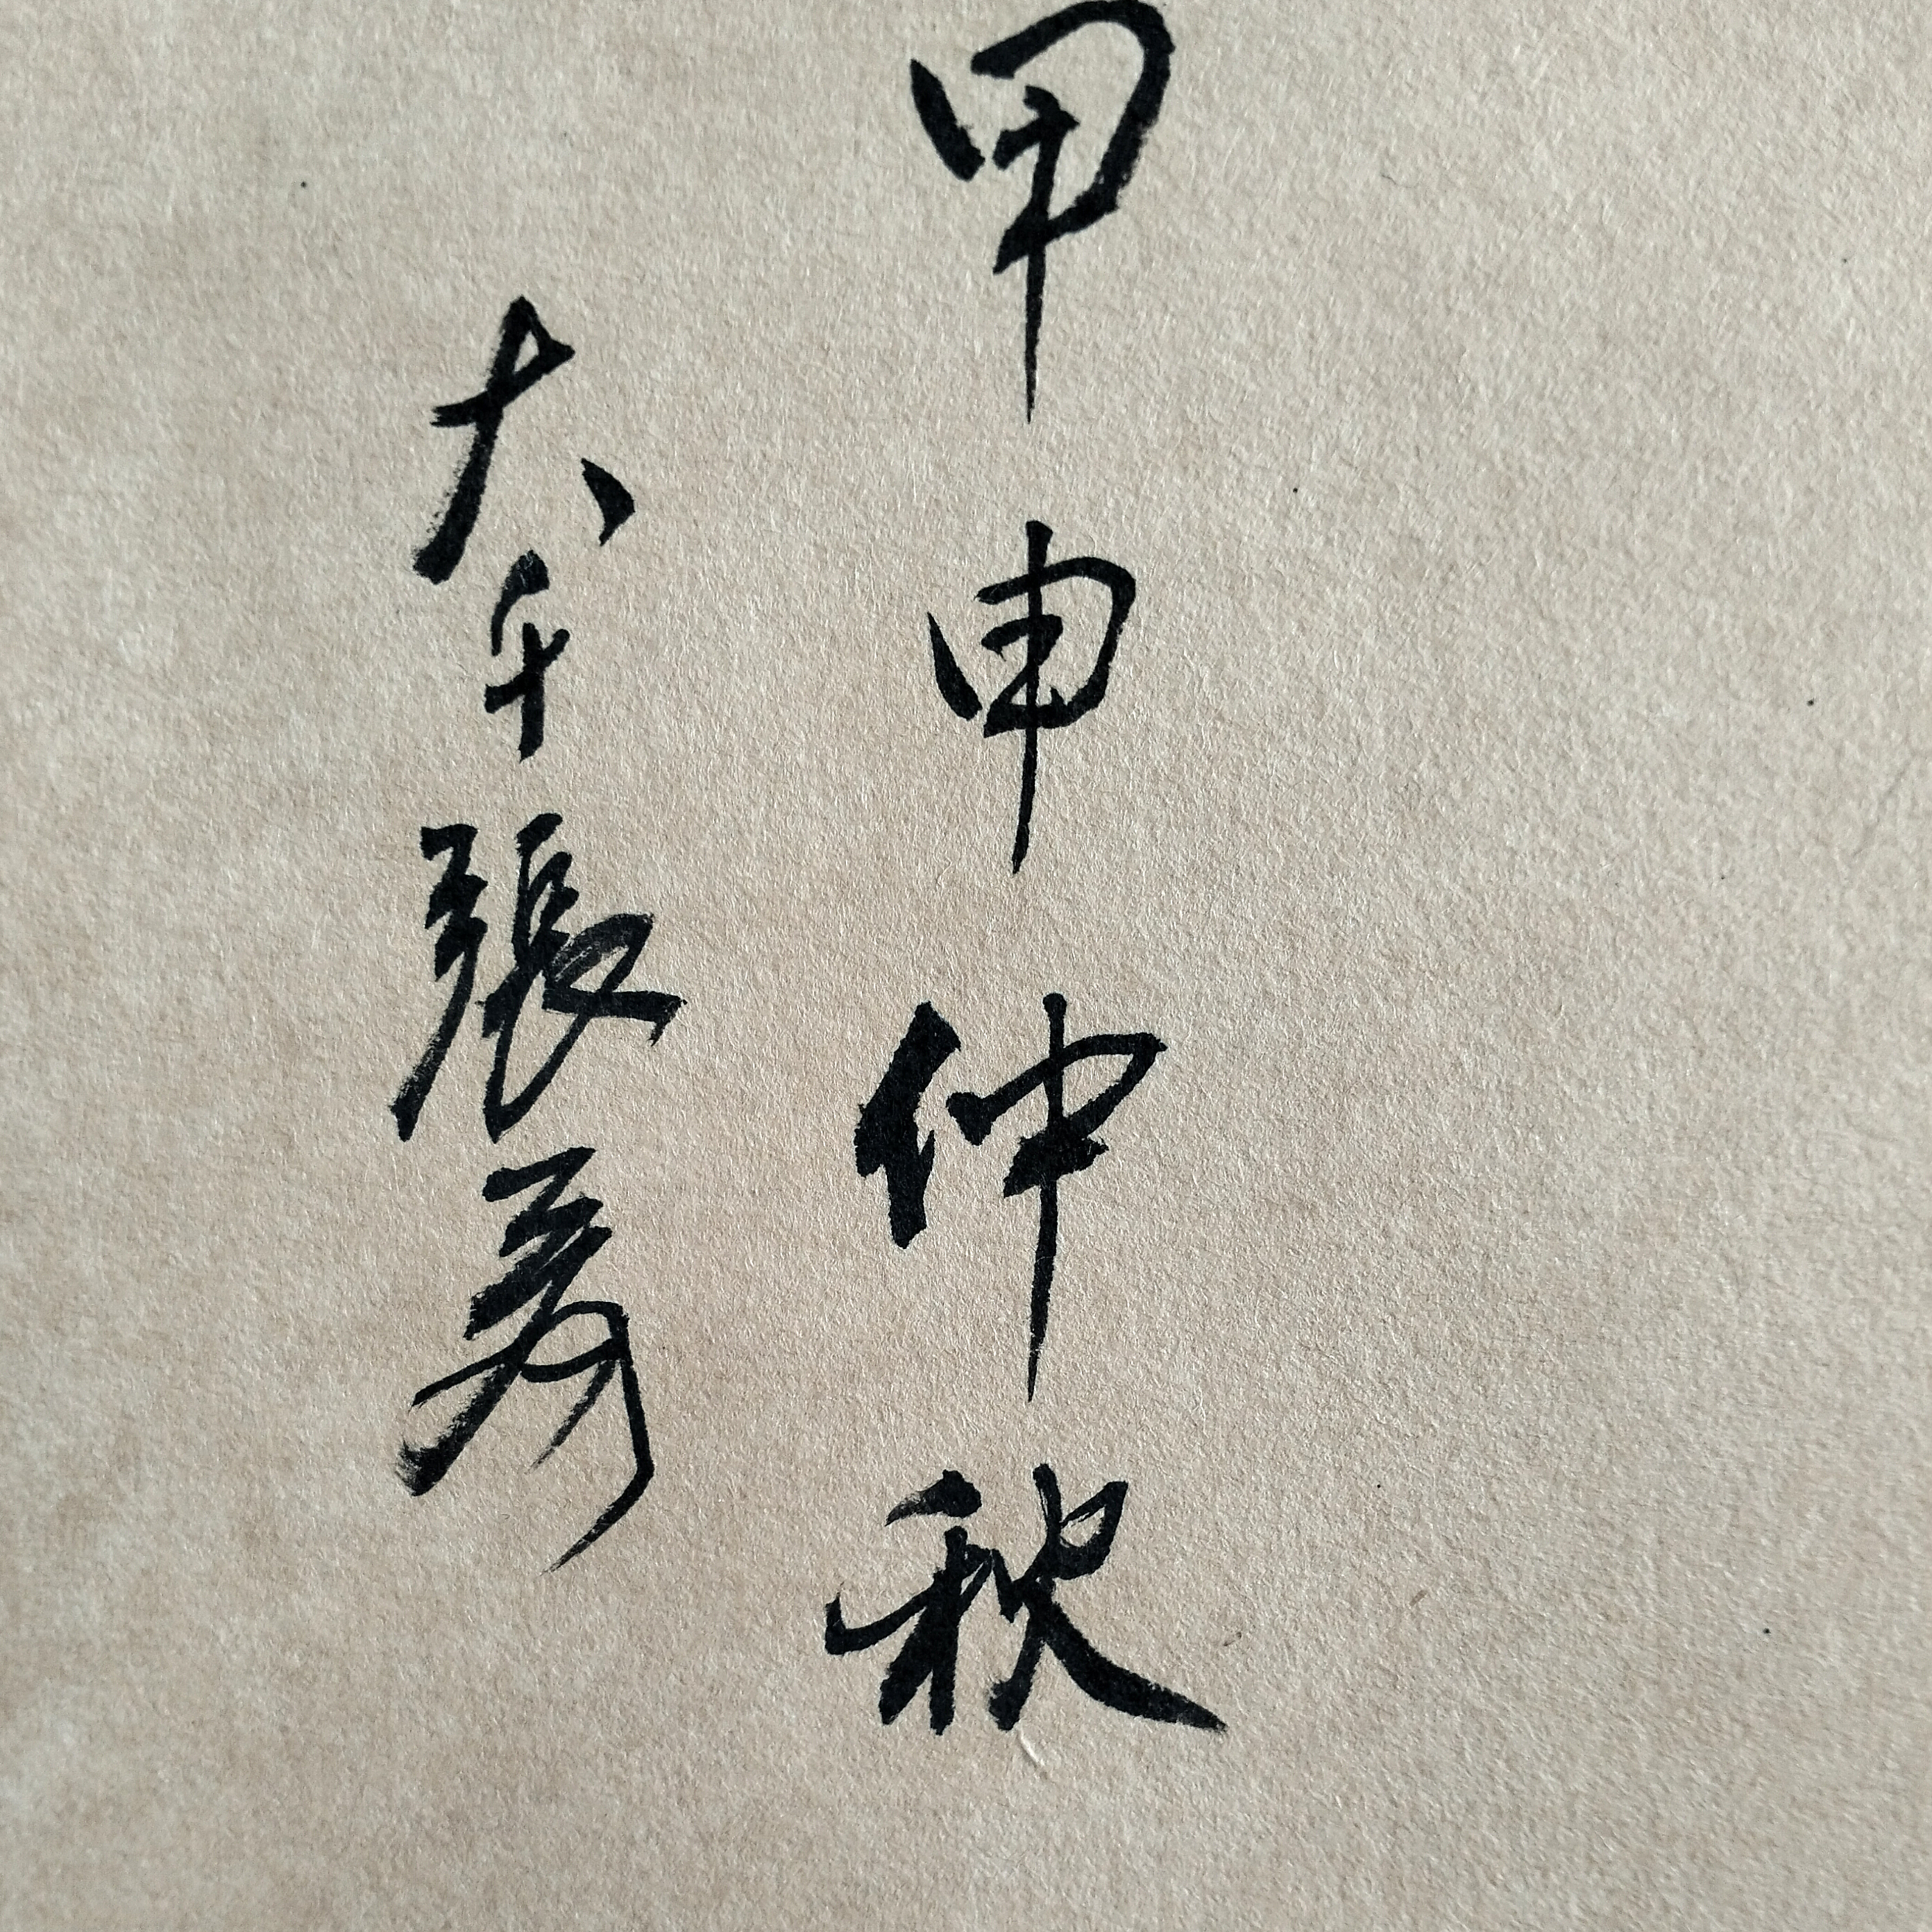 甲申仲秋
大千張爰